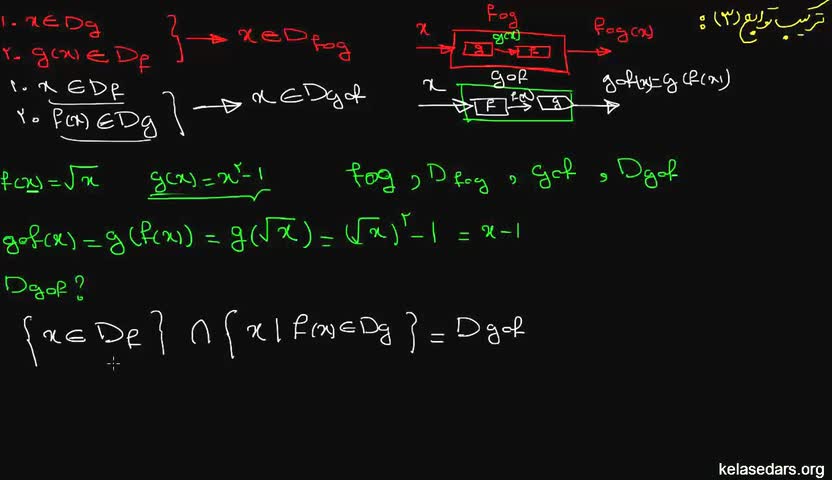 ترکیب توابع (۳) :
۱. x ∈ Dg
۲. g(x) ∈ Df → x ∈ Dfog
fog
x → g g(x) → f → fog(x)
۱. x ∈ Df
۲. f(x) ∈ Dg → x ∈ Dgof
gof
x → f f(x) → g → gof(x)=g(f(x))
f(x)=√x g(x)=x²-1 fog , Dfog , gof , Dgof
gof(x) = g(f(x)) = g(√x) = (√x)²-1 = x-1
Dgof ?
{x ∈ Df} ∩ {x | f(x) ∈ Dg} = Dgof
kelasedars.org